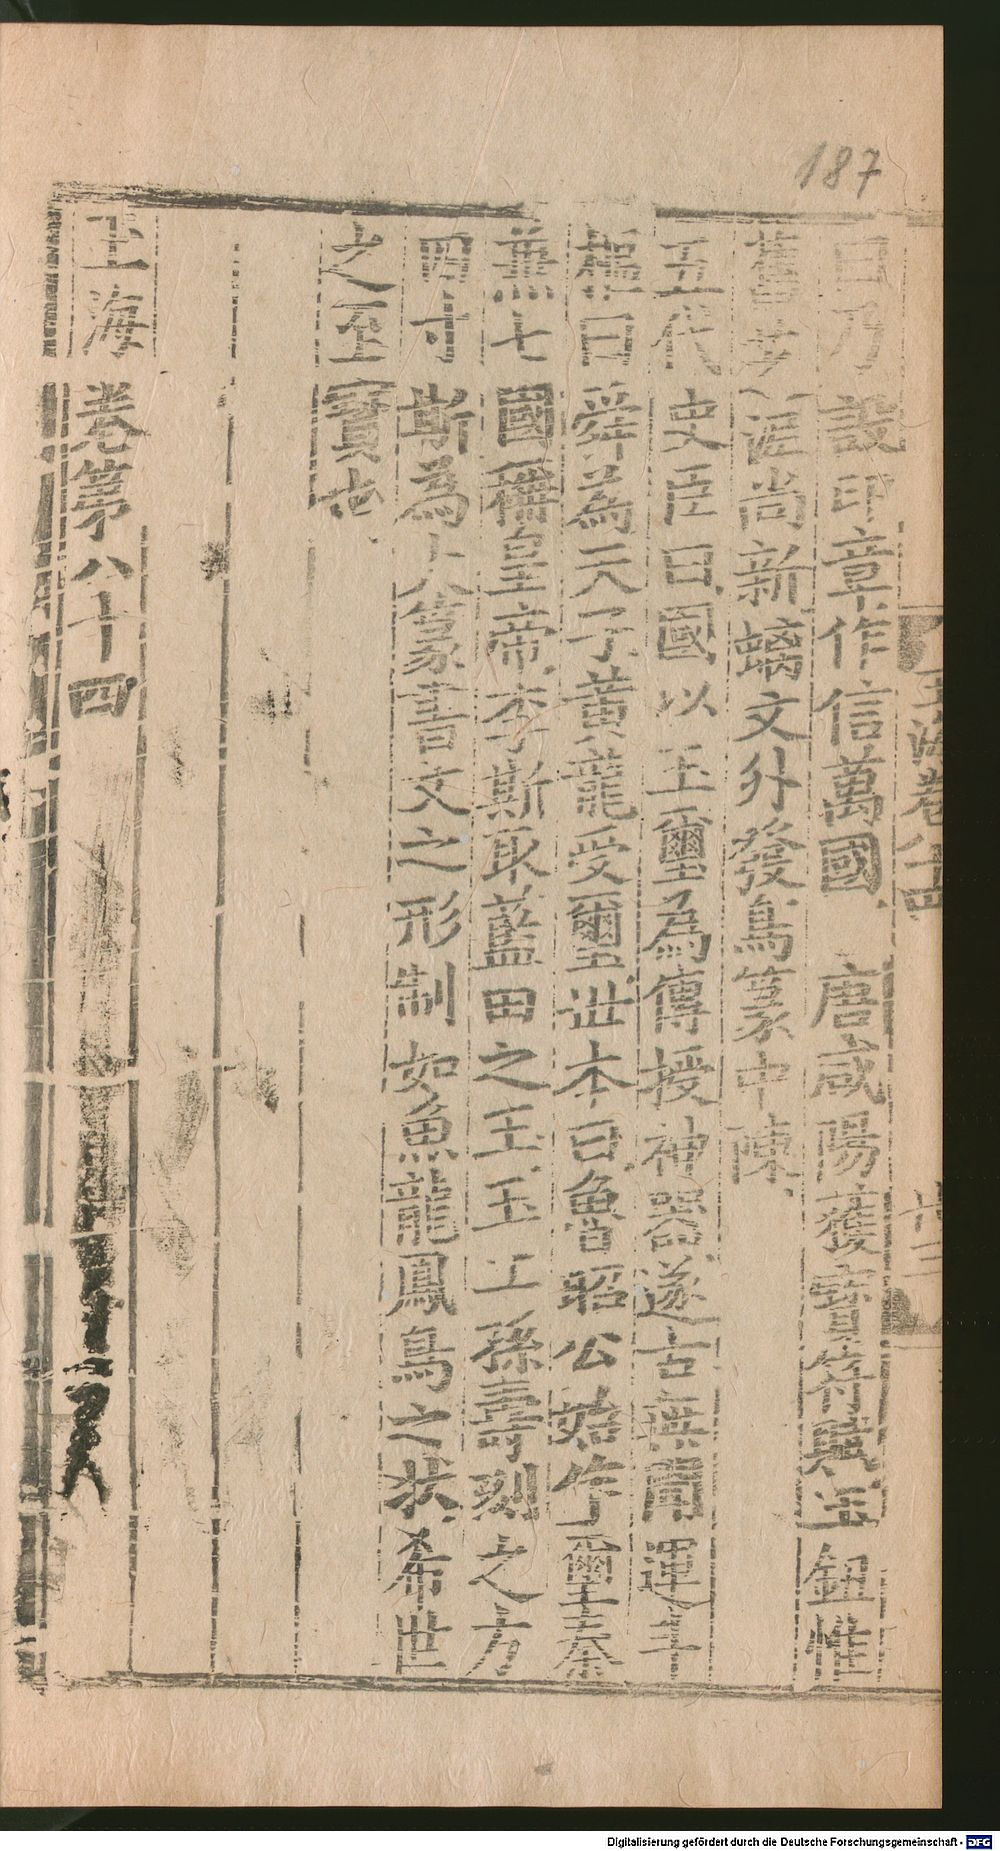 187
玉海卷八十四
十三
曰乃設印章作信萬國 唐咸陽獲寶符賦玉鈕惟
舊字滋尚新螭文外發鳥篆中陳
五代史臣曰國以玉璽為傳授神器遂古無聞運斗
樞曰舜為天子黃龍受璽世本曰魯昭公始作璽秦
兼七國稱皇帝李斯取藍田之玉玉工孫壽刻之方
四寸斯為大篆書文之形制如魚龍鳳鳥之狀希世
之至寶也
玉海卷第八十四
Digitalisierung gefördert durch die Deutsche Forschungsgemeinschaft - DFG